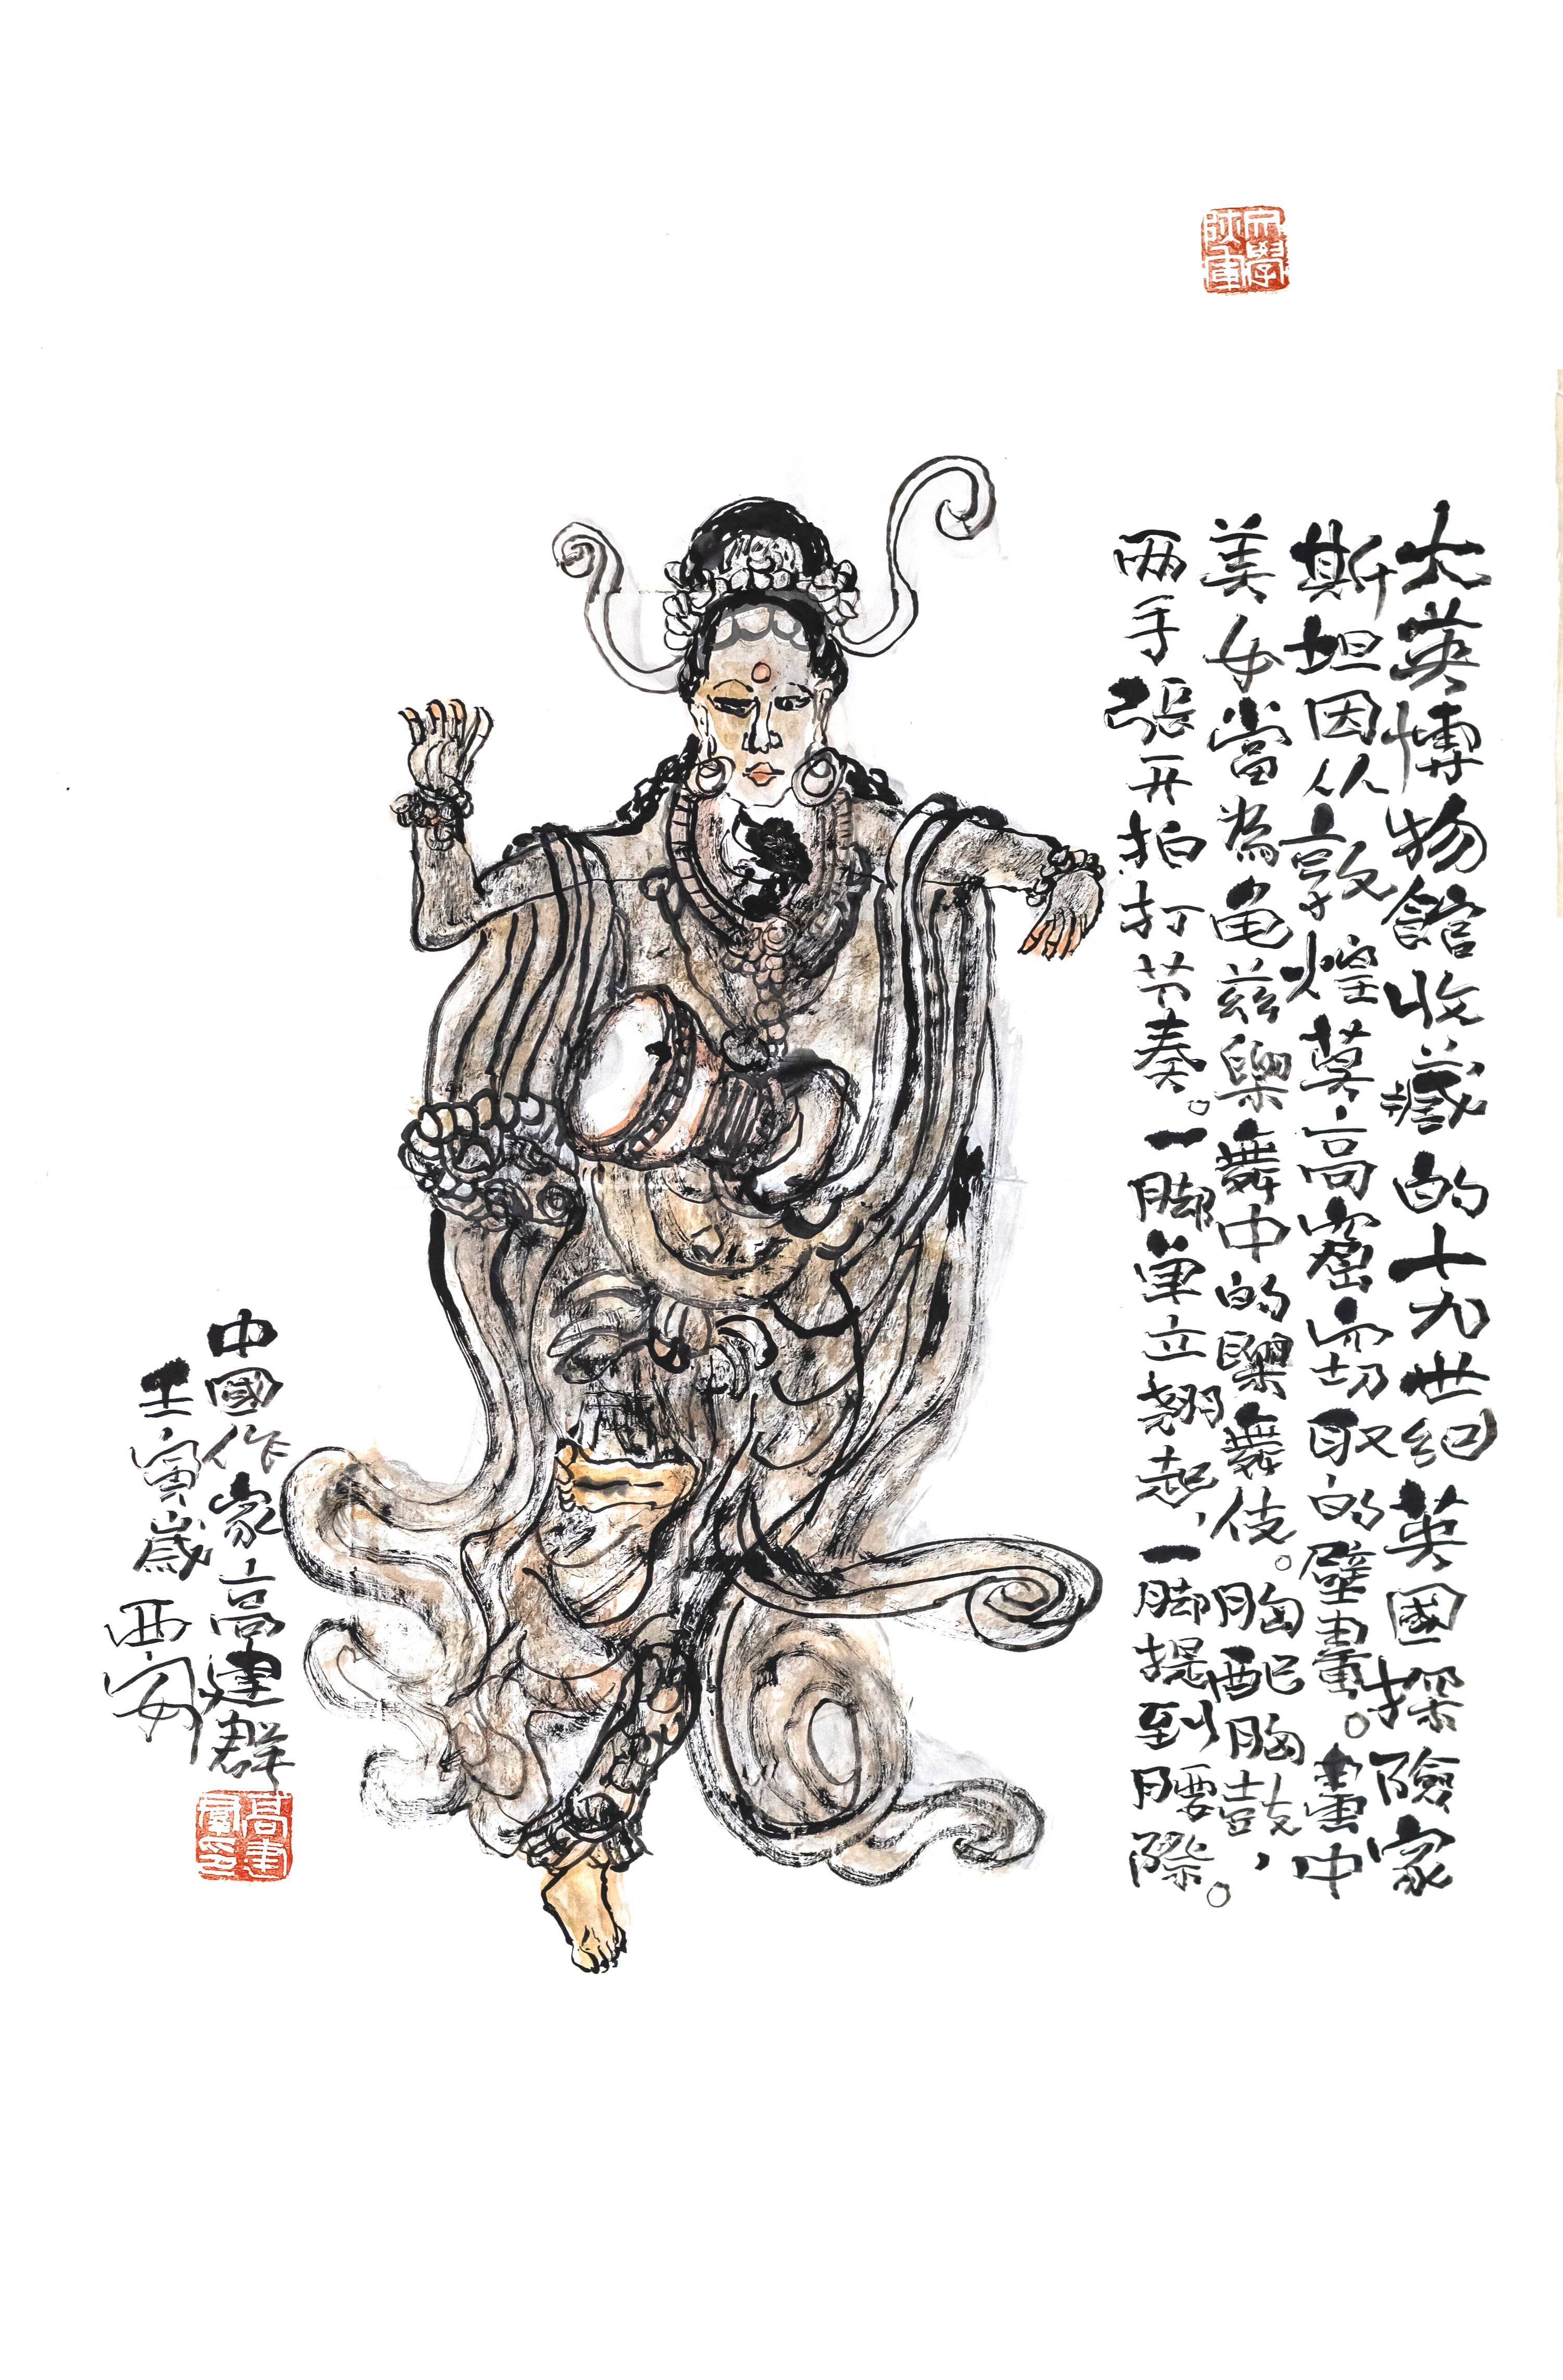 大英博物館收藏的十九世纪英國探險家
斯坦因从敦煌莫高窟窃取的壁畫。畫中
美女當為龟兹樂舞中的樂舞伎。胸配胸鼓，
两手張开拍打节奏。一脚单立翘起，一脚提到腰際。
中國作家高建群
壬寅歲西安